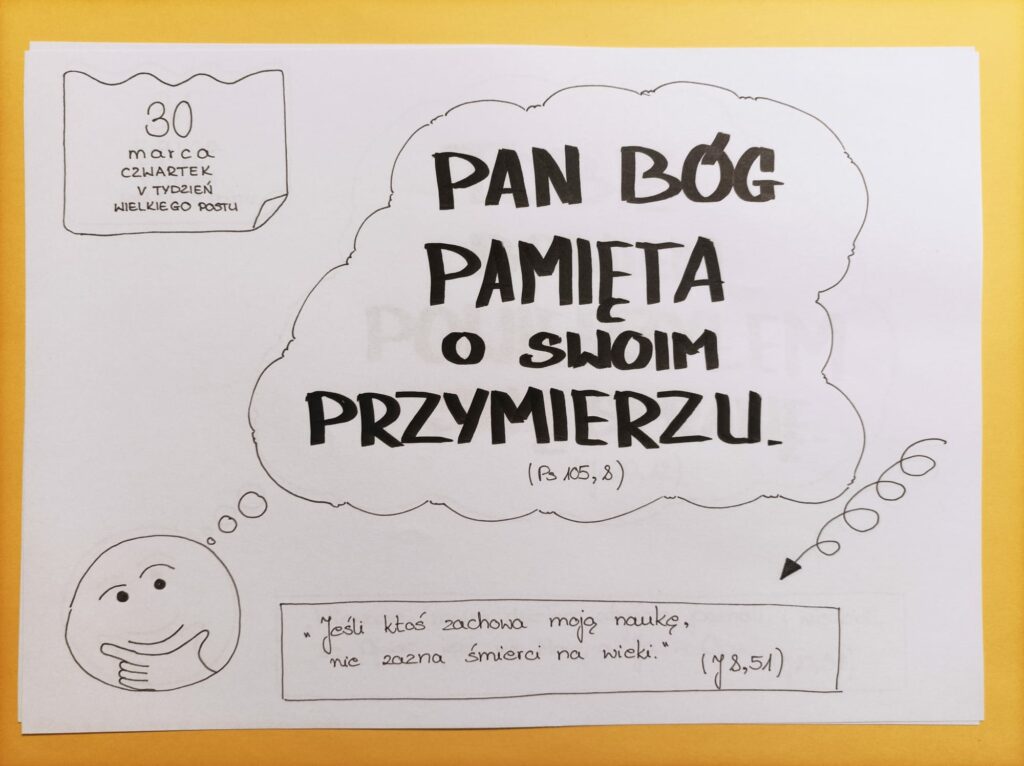 30
marca
CZWARTEK
V TYDZIEŃ
WIELKIEGO POSTU
PAN BÓG
PAMIĘTA
O SWOIM
PRZYMIERZU.
(Ps 105, 8)
"Jeśli ktoś zachowa moją naukę,
nie zazna śmierci na wieki."
(J 8,51)